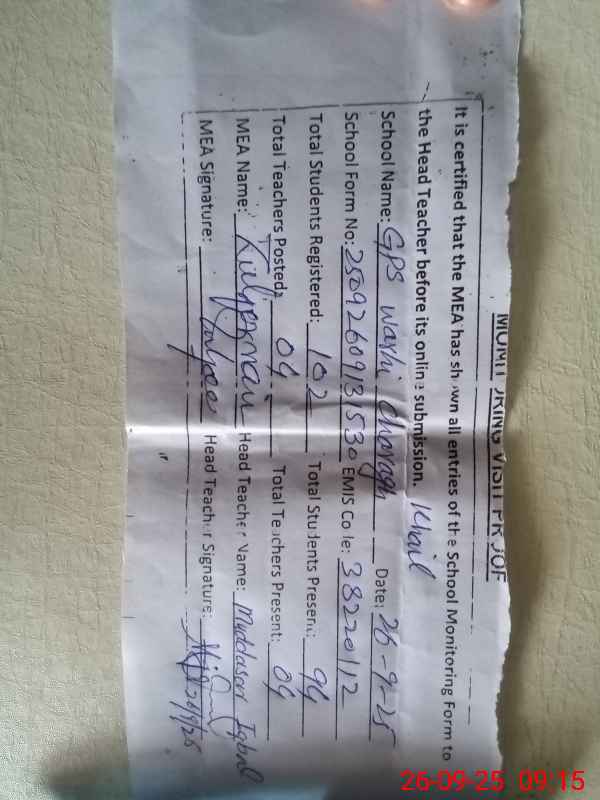 MONITORING VISIT PROOF
It is certified that the MEA has shown all entries of the School Monitoring Form to
the Head Teacher before its online submission.
School Name: GPS warki charagh Khail Date: 26-9-25
School Form No: 25092609131530 EMIS Code: 38220112
Total Students Registered: 102 Total Students Present: 94
Total Teachers Posted: 04 Total Teachers Present: 04
MEA Name: Head Teacher Name: Muddasar Iqbal
MEA Signature: Head Teacher Signature: 26/9/25
26-09-25 09:15